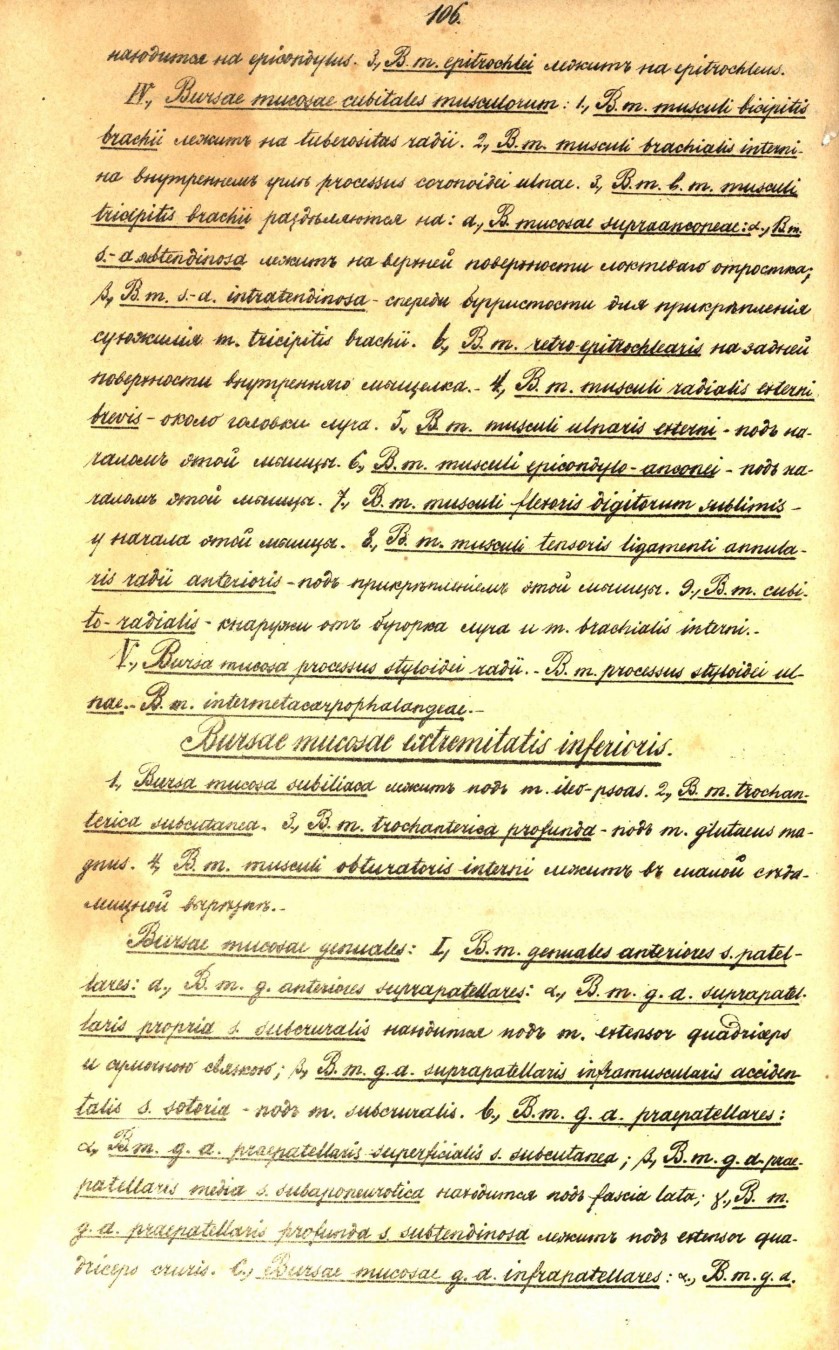 106.
находится на epicondylus. 3, B. m. epitrochlei лежитъ на epitrochleus.
IV, Bursae mucosae cubitales musculorum: 1, B. m. musculi bicipitis
brachii лежитъ на tuberositas radii. 2, B. m. musculi brachialis interni-
на внутреннемъ углѣ processus coronoidei ulnae. 3, B. m. b. m. musculi
tricipitis brachii раздѣляются на: a, B. mucosae supraanconeae: α, B. m.
s.-a subtendinosa лежитъ на верхней поверхности локтеваго отростка;
β, B. m. s.-a. intratendinosa - спереди бугристости для прикрѣпленія
сухожилія m. tricipitis brachii. b, B. m. retro-epitrochlearis на задней
поверхности внутренняго мыщелка.- 4, B. m. musculi radialis externi
brevis - около головки луча. 5, B. m. musculi ulnaris externi - подъ на-
чаломъ этой мышцы. 6, B. m. musculi epicondylo-anconei - подъ на-
чаломъ этой мышцы. 7, B. m. musculi flexoris digitorum sublimis -
у начала этой мышцы. 8, B. m. musculi tensoris ligamenti annula-
ris radii anterioris - подъ прикрѣпленіемъ этой мышцы. 9, B. m. cubi-
to-radialis - кнаружи отъ бугорка луча и m. brachialis interni.-
V, Bursa mucosa processus styloidei radii.- B. m. processus styloidei ul-
nae.- B. m. intermetacarpophalangeae.-
Bursae mucosae extremitatis inferioris.
1, Bursa mucosa subiliaca лежитъ подъ m. ileo-psoas. 2, B. m. trochan-
terica subcutanea. 3, B. m. trochanterica profunda - подъ m. glutaeus ma-
gnus. 4, B. m. musculi obturatoris interni лежитъ въ малой сѣда-
лищной вырѣзкѣ.-
Bursae mucosae genuales: I, B. m. genuales anteriores s. patel-
lares: a, B. m. g. anteriores suprapatellares: α, B. m. g. a. suprapatel-
laris propria s. subcruralis находится подъ m. extensor quadriceps
и сумочною связкою; β, B. m. g. a. suprapatellaris inframuscularis acciden
talis s. sotoria - подъ m. subcruralis. b, B. m. g. a. praepatellares:
α, B. m. g. a. praepatellaris superficialis s. subcutanea; β, B. m. g. a. prae-
patellaris media s. subaponeurotica находится подъ fascia lata; γ, B. m.
g. a. praepatellaris profunda s. subtendinosa лежитъ подъ extensor qua-
driceps cruris. C, Bursae mucosae g. a. infrapatellares: α, B. m. g. a.